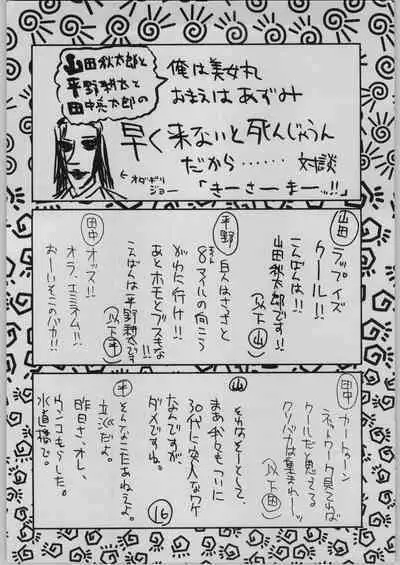 山田秋太郎と
平野耕太と
田中亮太郎の
俺は美女丸
おまえはあずみ
早く来ないと死んじゃうん
だから……対談
「きーさーまーッ!!」
←オダギリ
ジョー
山田
ラップイズ
クール!!
こんばんは!!
山田秋太郎です!!
(以下山)
平野
白人はさっさと
8マイルの向こう
がわに行け!!
あとホモとブスもな
こんばんは平野耕太です
(以下平)
田中
オッス!!
オラ、エミネム!!
おーいそこのバカ!!
田中
カートゥーン
ネットワーク見てれば
クールだと思える
クソバカは集まれーッ
(以下田)
山
それはそーとして、
まあ我々もついに
30代に突入なワケ
なんですが
ダメですね。
平
そんなこたあねえよ。
立派だよ。
昨日さ、オレ、
ウンコもらした。
水道橋で。
16